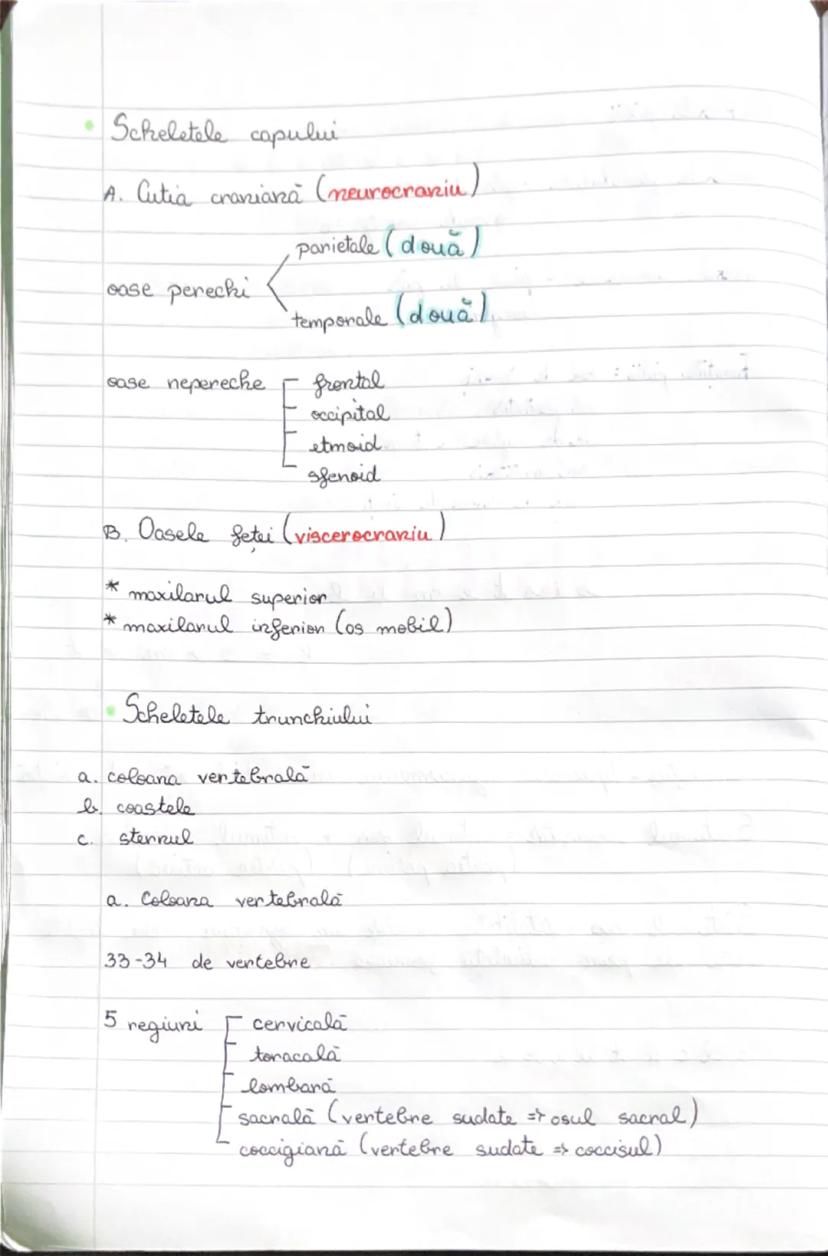 Scheletele capului
A. Cutia craniană (neurocraniu)
parietale (două)
oase perechi
temporale (două)
oase nepereche
frontal
occipital
etmoid
sfenoid
B. Oasele feței (viscerocraniu)
* maxilarul superior
* maxilarul inferior (os mobil)
Scheletele trunchiului
a. coloana vertebrală
b. coastele
c. sternul
a. Coloana vertebrală
33-34 de vertebre
5 regiuni
cervicală
toracală
lombară
sacrală (vertebre sudate => osul sacral)
coccigiană (vertebre sudate => coccisul)